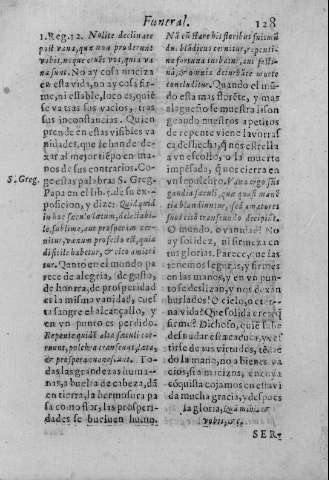 Funeral. 128
1. Reg. 12. Nolite declinare
post vana, quæ non proderunt
vobis, neque eruēt vos, quia va
na sunt. No ay cosa maciza
en esta vida, no ay cosa fir-
me, ni estable, loco es, quiē
se va tras sus vacios, tras
sus inconstancias. Quien
prende en estas visibles va
nidades, que le han de de-
xar al mejor tiempo en ma-
nos de sus contrarios. Co-
S. Greg.
ge estas palabras S. Greg.
Papa en el lib. 5. de su ex-
posicion, y dize: Quidquid
in hoc seculo latum, delectabi-
le, sublime, aut prosperum cer-
nitur, vanum profecto est, quia
dificile habetur, & cito amitti
tur. Quāto en el mundo pa
rece de alegria, de gusto,
de honra, de prosperidad
es la misma vanidad, cues
ta sangre el alcançallo, y
en vn punto es perdido.
Repente quidē alta seculi cor-
ruunt, pulchra transeunt, lata,
& prospera vanescunt. To-
das las grandezas huma-
nas, a buelta de cabeza, dā
en tierra, la hermosura pa
sa como flor, las prosperi-
dades se bueluen humo.
Nā cū stare his floribus
dū. blādicus cernitur, repenti-
no fortuna turbine, aut festi-
nā, & omnia deturbāte morte
concluditur. Quando el mū-
do esta mas florēte, y mas
alagueño se muestra lison
geando nuestros apetitos
de repente viene la vorras
ca deshecha, q̄ nos estrella
a vn escollo, o la muerte
impēsada, q̄ nos cierra en
vn sepulchro. Vana ergo sūt
gaudia seculi, quæ quasi manē
tia blandiuntur, sed amatores
suos cito transeundo decipiūt.
O mundo, o vanidad! No
ay solidez, ni firmeza en
tus glorias. Parece, que las
tenemos seguras, y firmes
en las manos, y en vn pun-
to se deslizan, y nos dexān
burlados! O cielo, o eter-
na vida! Que solida eres, q̄
firme? Dichoso, quiē sabe
desnudar esta caduca, y ve
stirse de tus virtudes, tēniē
do la mano, no a bienes va
cios, sí a macizos, en cuya
cōquista cojamos en esta vi
da mucha gracia, y despues
la gloria, Quā mihi, &
vobis, &c.
SER-